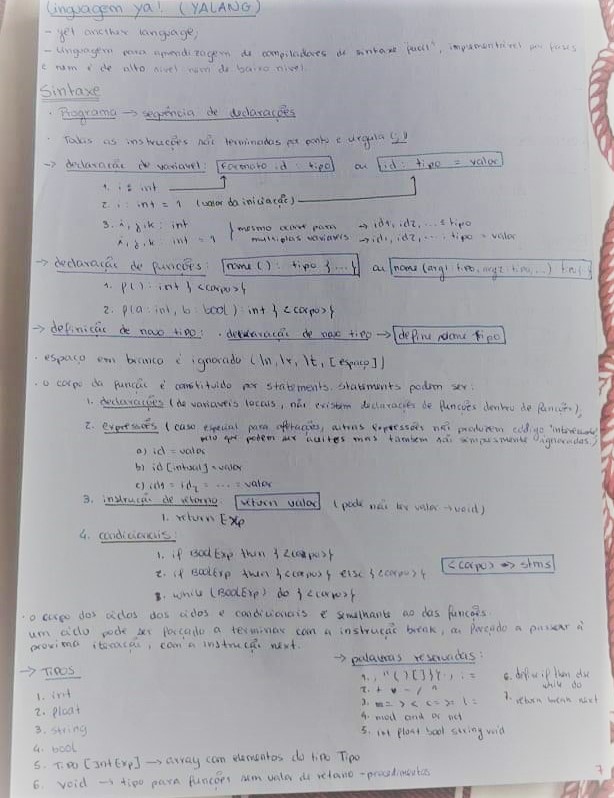 Linguagem ya! (YALANG)
- yet another language;
- Linguagem para aprendizagem de compiladores de sintaxe facil, implementável por fases
e nem é de alto nivel nem de baixo nivel.
Sintaxe
· Programa → sequência de declarações
· Todas as instrucções são terminadas por ponto e virgula ";"
→ declaração de variavel: formato id : tipo ou id : tipo = valor
1. i : int
2. i : int = 1 (valor da iniciação)
3. i, j, k : int } mesmo ocorre para → id1, id2, ... : tipo
i, j, k : int = 1 multiplas variaveis → id1, id2, ... : tipo = valor
→ declaração de funções: nome () : tipo {...} ou nome (arg1 : tipo, arg2 : tipo, ...)
1. f() : int { <corpo> }
2. f(a : int, b : bool) : int { <corpo> }
→ definição de novo tipo: · declaração de novo tipo → define nome tipo
· espaço em branco é ignorado (\n, \r, \t, [espaço])
· o corpo da função é constituido por statements. Statements podem ser:
1. declarações (de variaveis locais, não existem declarações de funções dentro de funções),
2. expressões (caso especial para afetação, outras expressões não produzem código
pelo que podem ser aceites mas também são simplesmente ignoradas.)
a) id = valor
b) id [intval] = valor
c) id1 = id2 = ... = valor
3. instrução de retorno: return valor (pode não ter valor → void)
1. return Exp
4. condicionais:
1. if BoolExp then { <corpo> }
2. if BoolExp then { <corpo> } else { <corpo> }
3. while (BoolExp) do { <corpo> }
<corpo> => stms
· o corpo dos ciclos dos ciclos e condicionais é semelhante ao das funções.
um ciclo pode ser forçado a terminar com a instrução break, ou forçado a passar à
proxima iteração, com a instrução next.
→ TIPOS
1. int
2. float
3. string
4. bool
5. Tipo [IntExp] → array com elementos do tipo Tipo
6. void → tipo para funções sem valor de retorno - procedimentos
→ palavras reservadas:
4. mod and or not
5. int float bool string void
6. define if then else
while do
7. return break next
7